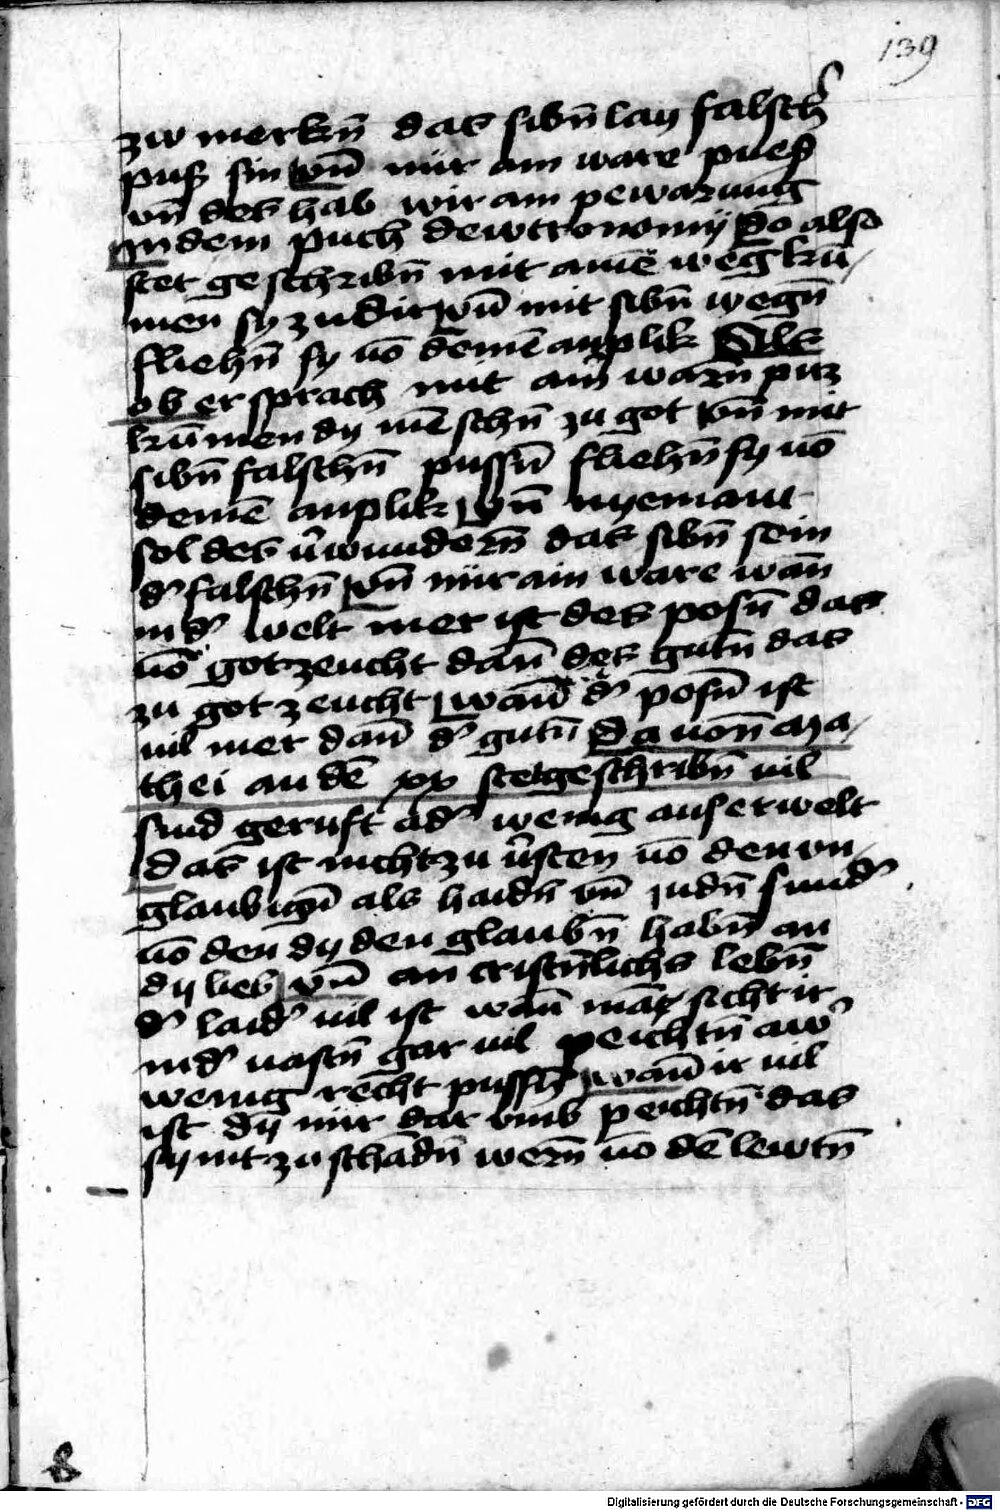 139
zw merkn̄ das sibn̄ lay falsch̄
puß sin vn̄ nür ain ware pueß
vn̄ des hab wir ain pewarung
In dem puch dewtronomij Do also
stet geschribn̄ mit aine͂ weg kū-
men sy zu dir vn̄ mit sibn̄ wegn̄
fliehn̄ sy vō deine͂ anplik Als
ob er sprach mit ain̄ warn̄ puz
kūmen dy me͂schn̄ zu got vn̄ mit
sibn̄ falschn̄ pussn̄ fliehn̄ sy vō
deine͂ anplik vn̄ nyemant
sol des v̄wundern̄ das sibn̄ sein
dˀ falschn̄ vn̄ nür ain ware wan̄
in dˀ welt mer ist des posn̄ das
vō got zeucht dan̄ des gutn̄ das
zu got zeucht wan̄ dˀ posn̄ ist
vil mer dan̄ dˀ gutn̄ Da von̄ Ma-
thei an de͂ xx stet geschribn̄ vil
sind geruft adˀ wenig auserwelt
das ist nicht zu v̄sten vō den vn-
glaubign̄ als haidn̄ vn̄ judn̄ sundˀ
vō den dy den glaubn̄ habn̄ an
dy lieb vn̄ an cristn̄lichs lebn̄
dˀ laidˀ vil ist wan̄ man sicht ir
in dˀ vastn̄ gar vil peichtn̄ awˀ
wenig recht pussn̄ wan̄ ir vil
ist dy nür dar vmb peichtn̄ das
sy nit zu schādn̄ wern̄ vō de͂ lewtn̄
Digitalisierung gefördert durch die Deutsche Forschungsgemeinschaft - DFG